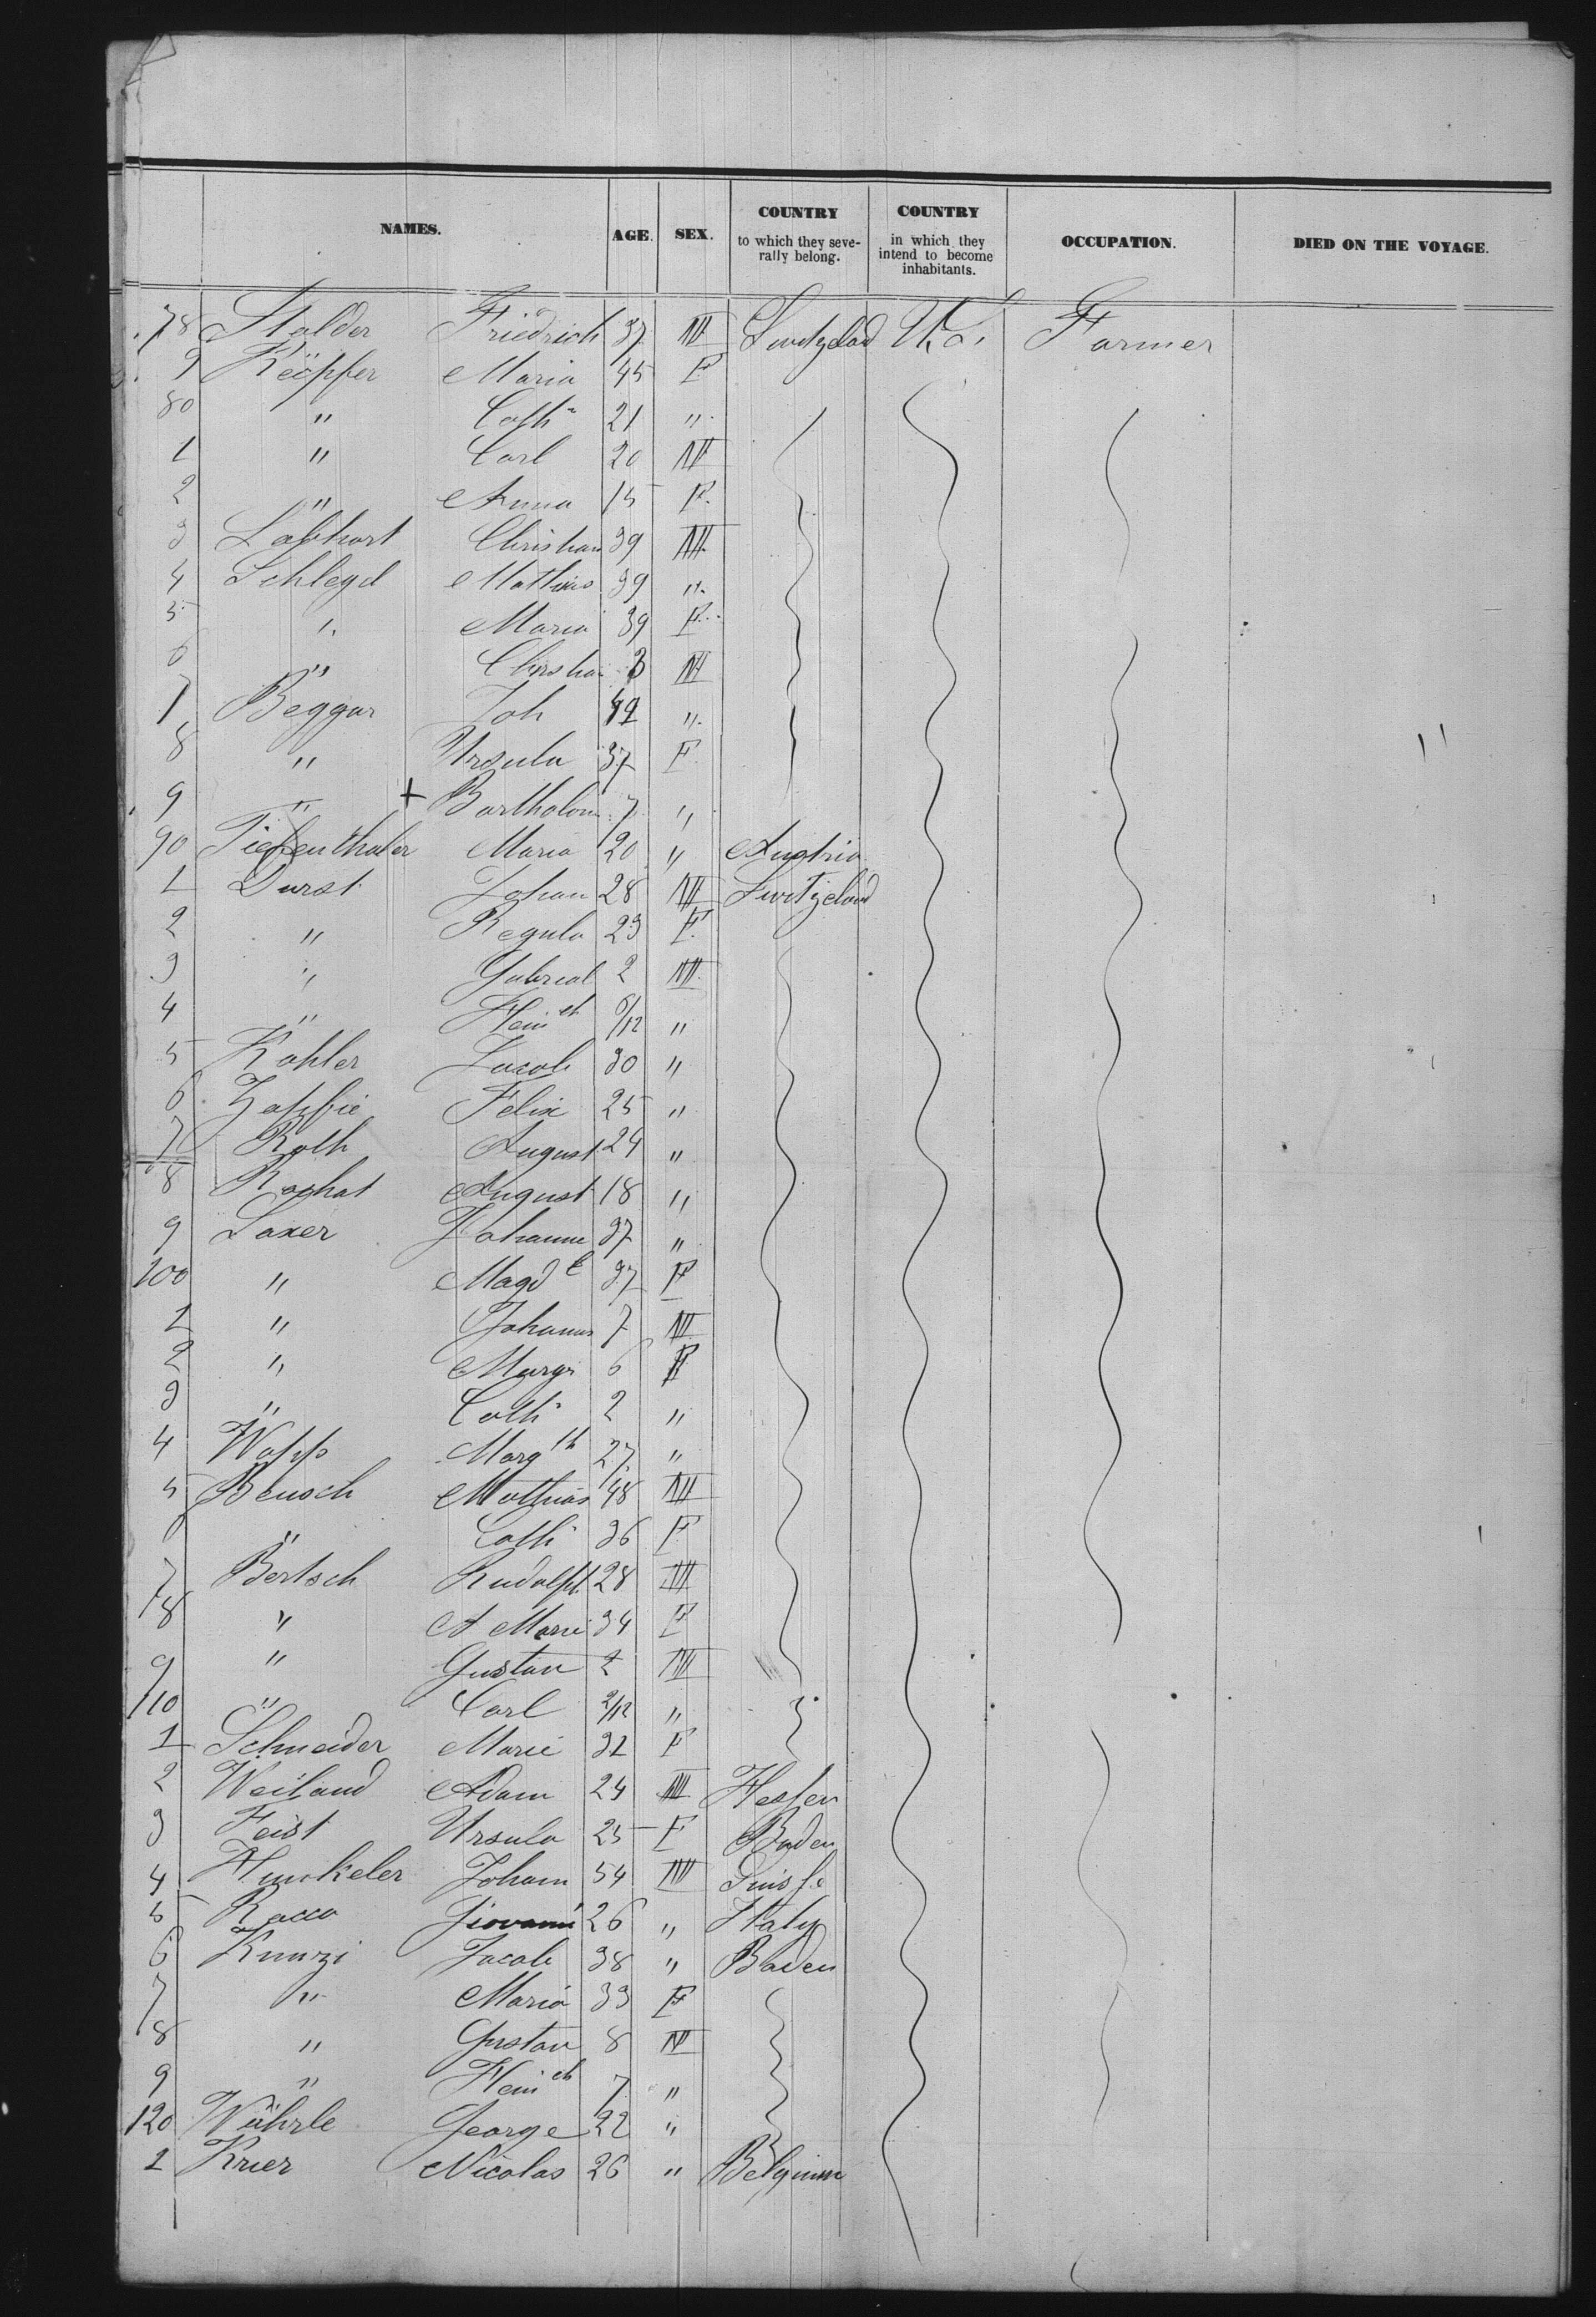 NAMES. AGE. SEX. COUNTRY to which they severally belong. COUNTRY in which they intend to become inhabitants. OCCUPATION. DIED ON THE VOYAGE.
78 Stalder Friedrich 37 M Switzelad U.S. Farmer
9 Köpfer Maria 45 F
80 " Cath 21 "
1 " Carl 20 M
2 " Anna 15 F.
3 Labhart Christian 39 M.
4 Schlegel Mathias 39 "
5 " Maria 39 F.
6 " Christia 3 M
7 Beggar Joh 42 "
8 " Ursula 37 F
9 " + Bartholom 7 "
90 Tiefenthaler Maria 20 " Austria
1 Durst Johan 28 M Switzeland
2 " Regula 23 F.
3 " Gabriel 2 M.
4 " Heinch 6/12 "
5 Kohler Jacob 30 "
6 Felix 25 "
7 Roth August 24 "
8 Rochat August 18 "
9 Saxer Johanne 37 "
100 " Magd 37 F
1 " Johannes 7 M
2 " Marga 6 F
3 " Cath 2 "
4 Wapp Margth 27 "
5 Beusch Mathias 48 M
6 " Cath 36 F
7 Bertsch Rudolph 28 M
8 " A Marie 34 F
9 " Gustav 2 M
110 " Carl 2/12 "
1 Schneider Marie 32 F
2 Weiland Adam 24 M Hessen
3 Feist Ursula 25 F Baden
4 Hunkeler Johann 54 M Suisse
5 Rocco Giovanni 26 " Italy
6 Kunzi Jacob 38 " Baden
7 " Maria 33 F
8 " Gustav 8 M
9 " Heinch 7 "
120 Wührle George 22 "
1 Krier Nicolas 26 " Belgium